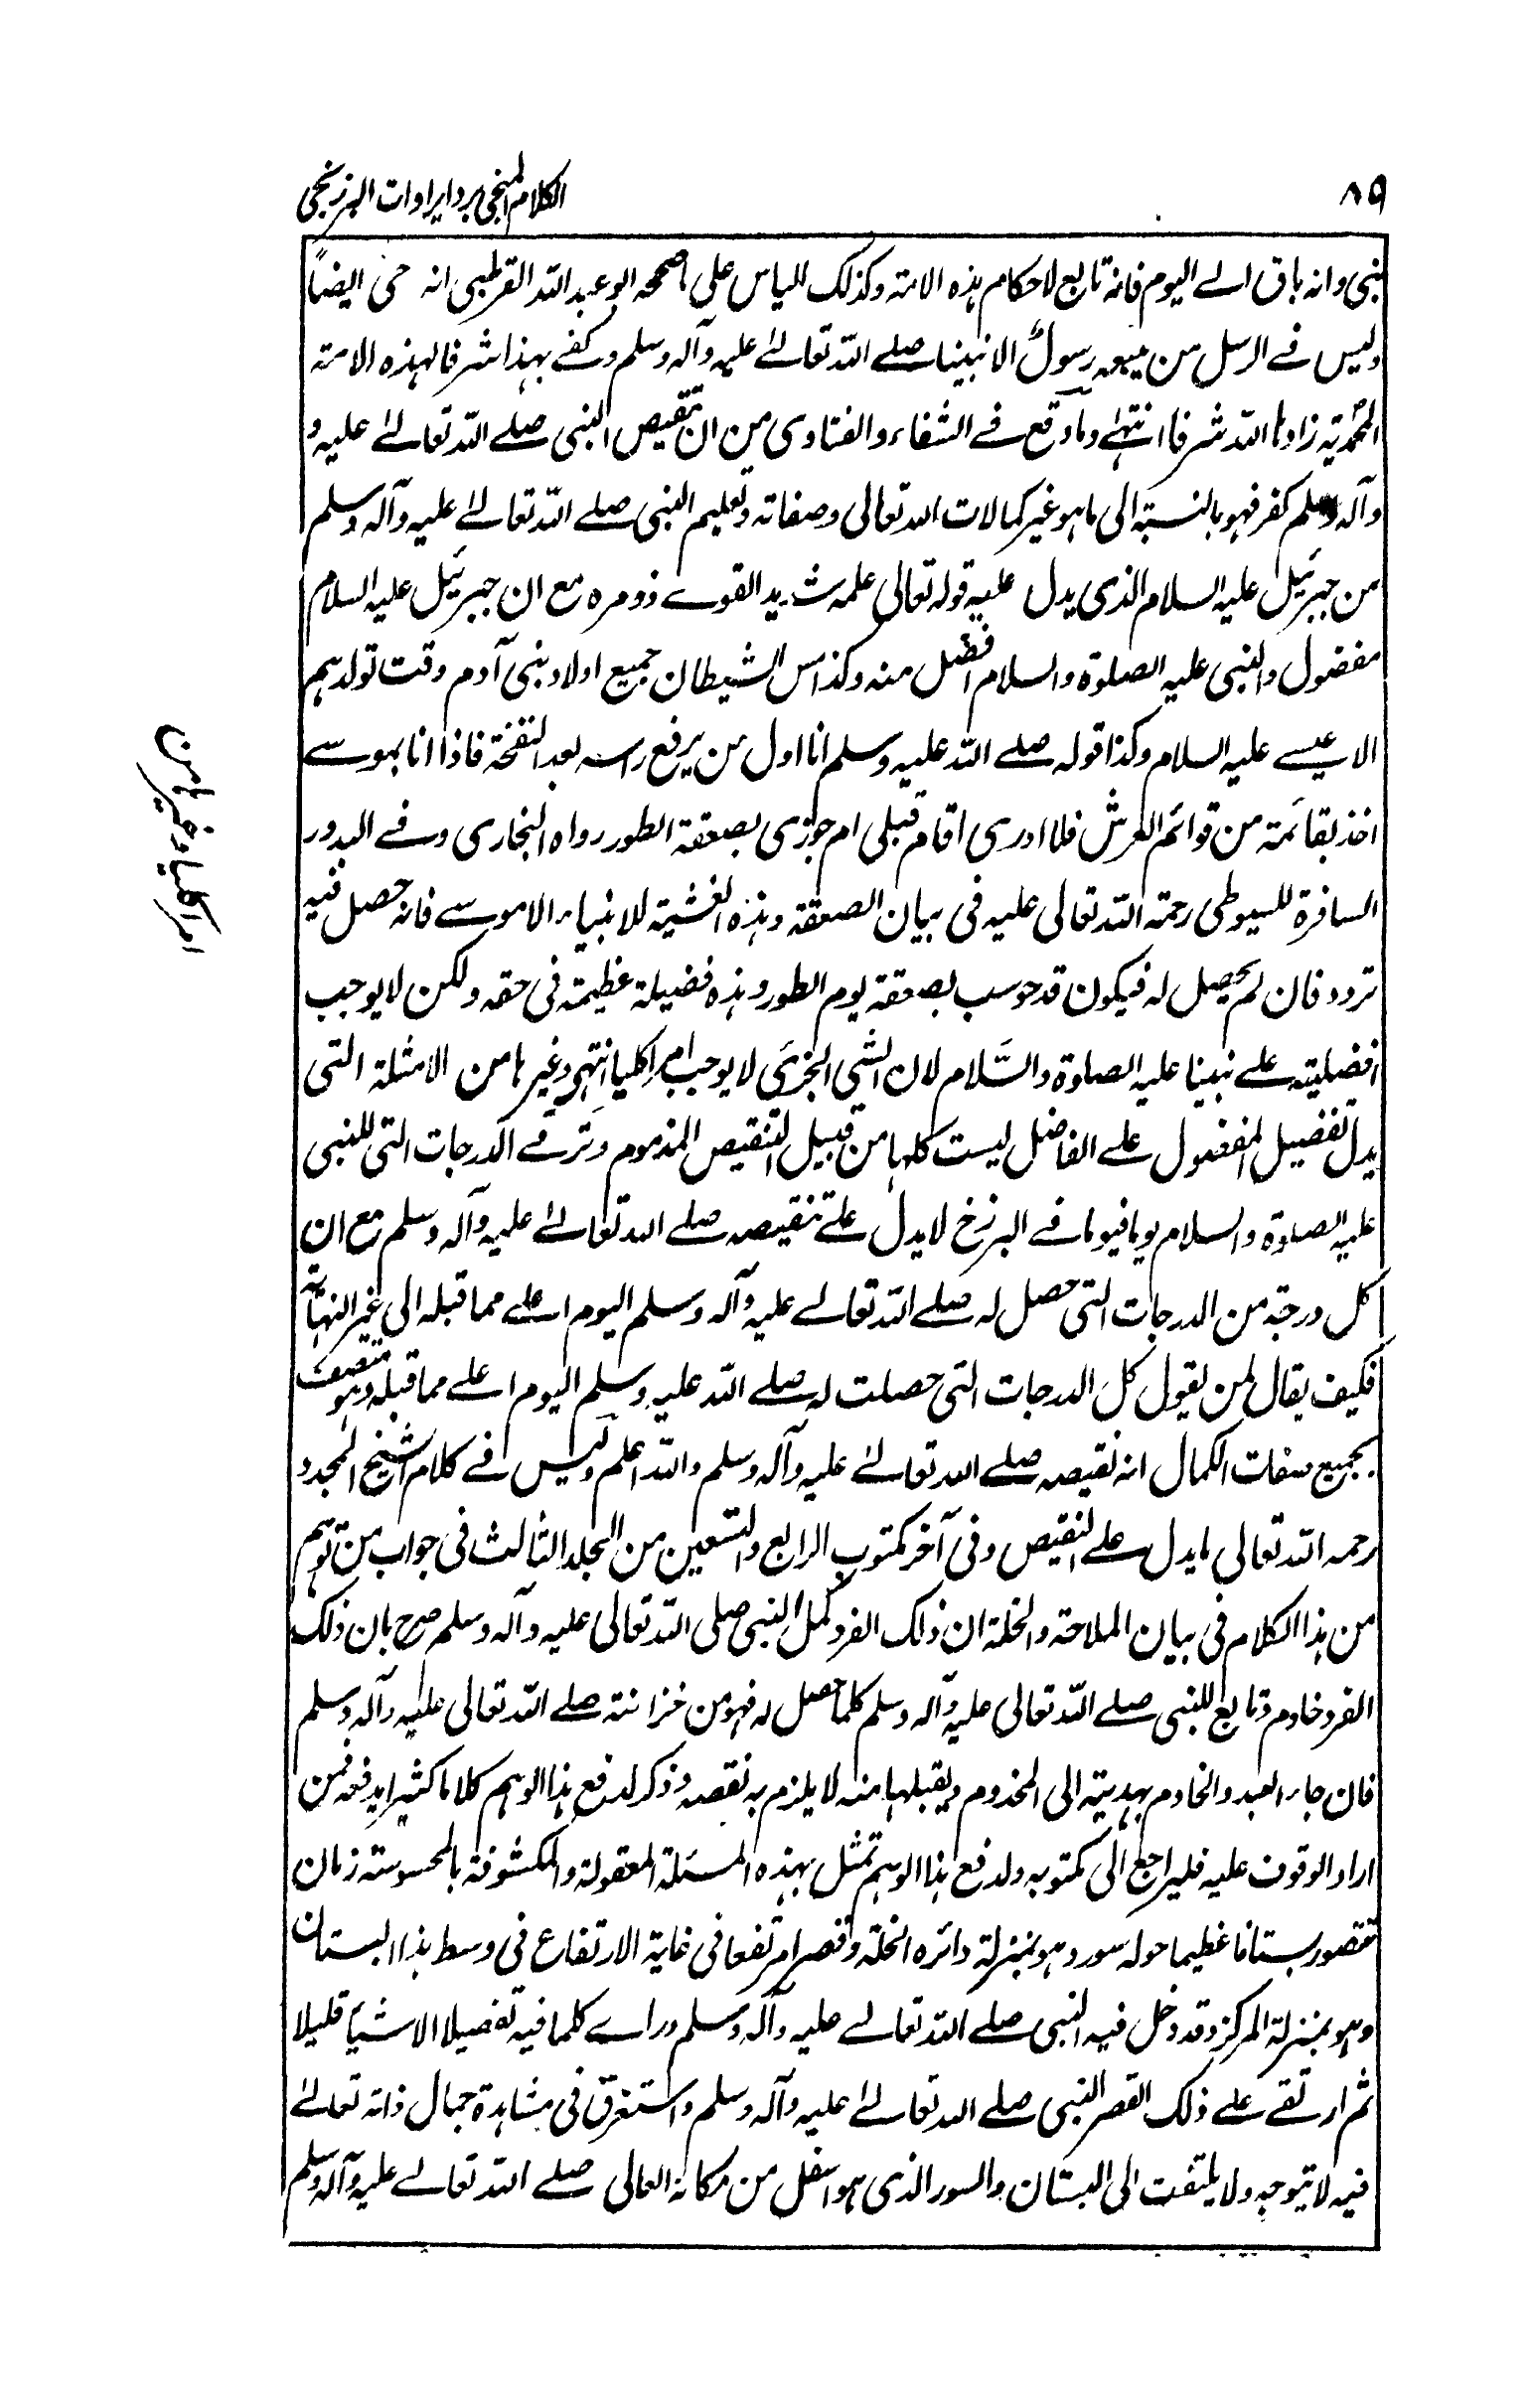 ٨٩
الكلام المنجى برد ايرادات البرزنجى
نبى وانه باق الے اليوم فانه تابع لاحكام هذه الامة وكذلك الياس على ما صححه ابو عبد الله القرطبى انه حى ايضاً
وليس فے الرسل من يتبعه رسول الا نبينا صلے الله تعالےٰ عليه وآله وسلم وكفے بهذا شرفا لهذه الامة
المحمدية زادها الله شرفا انتهےٰ وما وقع فے الشفاء والفتاوى من ان تنقيص النبى صلے الله تعالےٰ عليه و
وآله وسلم كفر فهو بالنسبة الى ما هو غير كمالات الله تعالى وصفاته وتعليم النبى صلے الله تعالےٰ عليه وآله وسلم
من جبرئيل عليه السلام الذى يدل عليه قوله تعالى علمه شديد القوے ذو مره مع ان جبرئيل عليه السلام
مفضول والنبى عليه الصلوة والسلام افضل منه وكذا مس الشيطان جميع اولاد بنى آدم وقت تولدهم
الا عيسے عليه السلام وكذا قوله صلے الله عليه وسلم انا اول من يرفع راسه بعد النفخة فاذا انا بموسے
اخذ بقائمة من قوائم العرش فلا ادرى اقام قبلى ام جوزى بصعقة الطور رواه البخارى وفے البدور
السافرة للسيوطى رحمة الله تعالى عليه فى بيان الصعقة وهذه الغشية للانبياء الا موسے فانه حصل فيه
تردد فان لم يحصل له فيكون قد حوسب بصعقة يوم الطور وهذه فضيلة عظيمة فى حقه ولكن لا يوجب
افضليته علے نبينا عليه الصلوة والسَّلام لان الشى الجزئى لا يوجب امرا كليا انتهى وغيرها من الامثلة التى
يدل تفضيل المفضول علے الفاضل ليست كلها من قبيل التنقيص المذموم وترقے الدرجات التى للنبى
عليه الصلوة والسلام يوما فيوما فے البرزخ لا يدل علے تنقيصه صلے الله تعالےٰ عليه وآله وسلم مع ان
كل درجة من الدرجات التى حصل له صلے الله تعالے عليه وآله وسلم اليوم اعلے مما قبله الى غير النهاية
فكيف يقال لمن يقول كل الدرجات التى حصلت له صلے الله عليه وسلم اليوم اعلے مما قبله وهو متصف
بجميع صفات الكمال انه نقيصه صلے الله تعالےٰ عليه وآله وسلم والله اعلم وليس فے كلام الشيخ المجدد
رحمه الله تعالى ما يدل علے النقيص وفى آخر مكتوب الرابع والتسعين من الجلد الثالث فى جواب من توهم
من هذا الكلام فى بيان الملاحة والخلة ان ذلك الفرد كمل النبى صلى الله تعالى عليه وآله وسلم صرح بان ذلك
الفرد خادم وتابع للنبى صلے الله تعالى عليه وآله وسلم كلما حصل له فهو من خزانته صلے الله تعالى عليه وآله وسلم
فان جاء العبد والخادم بهدية الى المخدوم ويقبلها منه لا يلزم به نقصه وذكر لدفع هذا الوهم كلاما كثيرا يدفعه فمن
اراد الوقوف عليه فليراجع الى مكتوبه ولدفع هذا الوهم تمثل بهذه المسئلة المعقولة والمكشوفة بالمحسوسة زمان
تتصور بستانا عظيما حوله سور وهو بمنزلة دائره الخلة وقصرا مرتفعا فى غاية الارتفاع فى وسط هذا البستان
وهو بمنزلة المركز وقد دخل فيه النبى صلے الله تعالے عليه وآله وسلم وراے كلما فيه تفصيلا الا شيأ قليلا
ثم ارتقے علے ذلك القصر النبى صلے الله تعالےٰ عليه وآله وسلم واستغرق فى مشاهدة جمال ذاته تعالےٰ
فيه لا يتوجه ولا يلتفت الى البستان والسور الذى هو اسفل من مكانه العالى صلے الله تعالے عليه وآله وسلم
امرا كليا وغيرها من